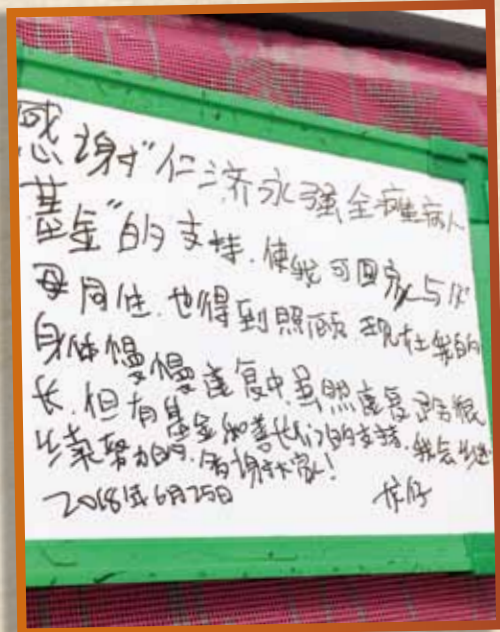 感谢"仁济永强全瘫病人
基金"的支持.使我可回家与父
母同住.也得到照顾.现在我的
身体慢慢康复中.虽照康复路很
长.但有基金和善长们的支持.我会继
续努力的.多谢大家!
2018年6月25日